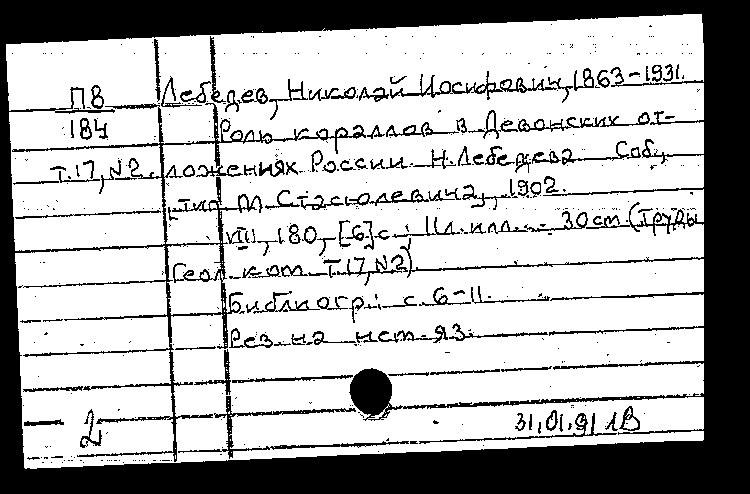 П8 Лебедев, Николай Иосифович, 1863-1931.
184 Роль кораллов в Девонских от-
Т.17, №2. ложениях России. Н. Лебедева Спб.,
тип М Стасюлевича, 1902.
VIII, 180, [6] с; 11 л. илл. - 30 cm (Труды
Геол. ком. Т.17, №2)
Библиогр.: с. 6-11.
Рез. на нем. яз.
2 31.01.91 ЛВ